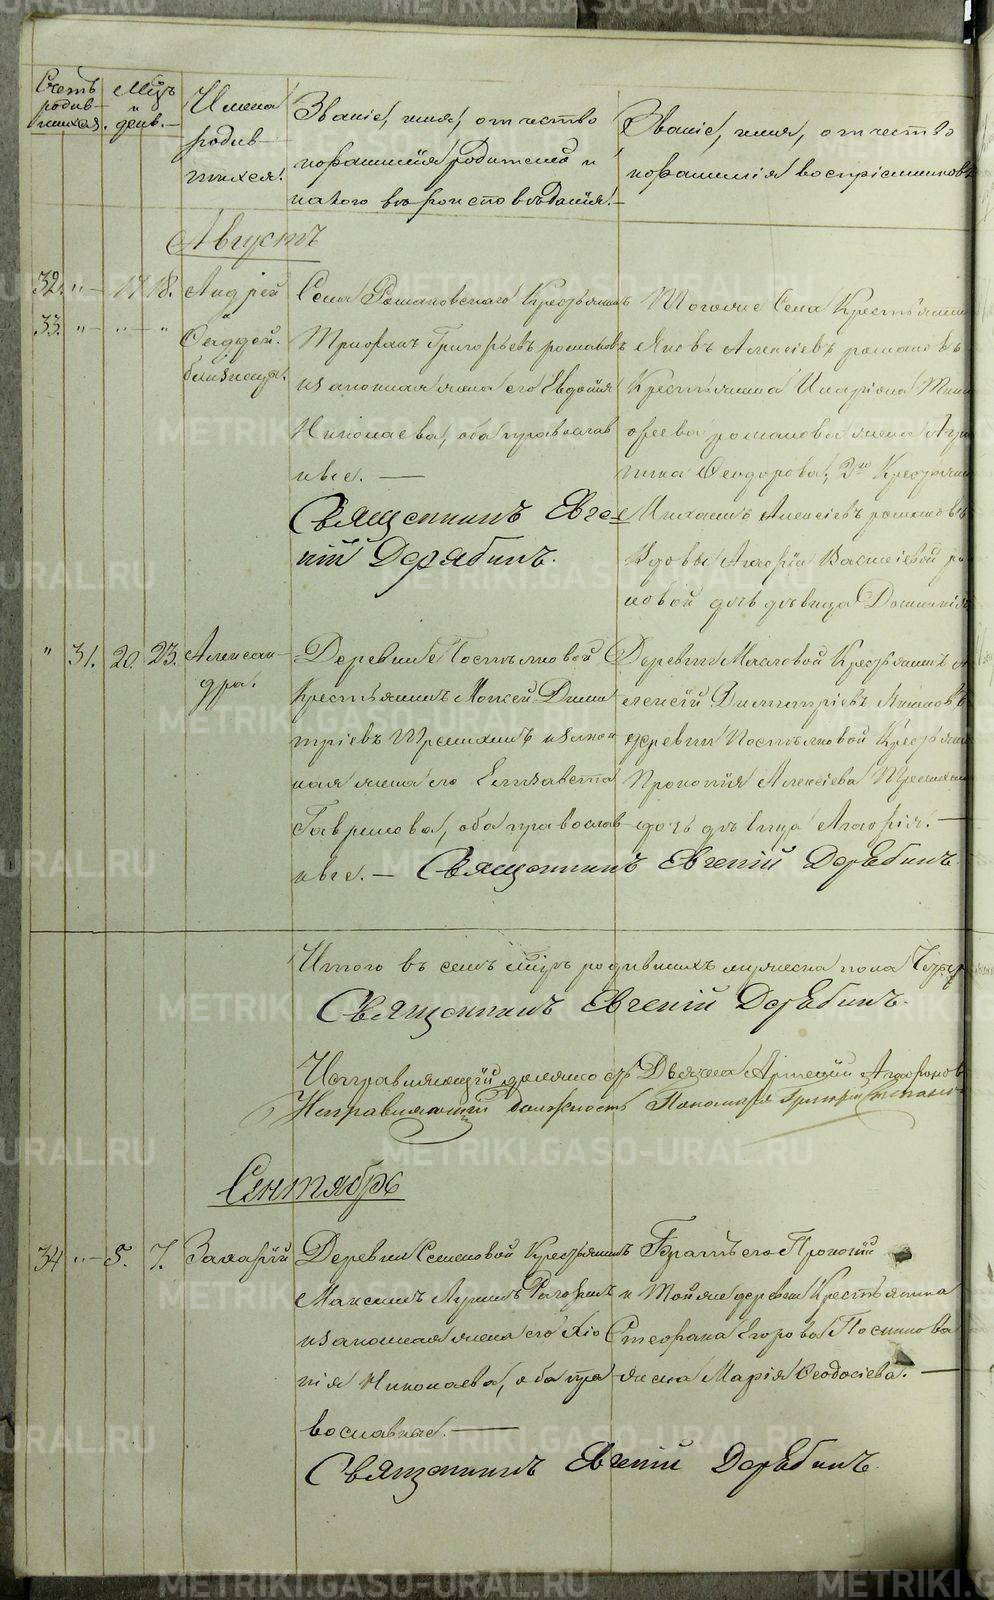 Счетъ родив-шихся.
Мцъ и день.
Имена родив-шихся.
Званіе, имя, отчество
и фамилія родителей и
какого вѣроисповѣданія.
Званіе, имя, отчество
и фамилія воспріемниковъ
Августъ
32. " 17 18. Андрей
33. " " " и Фаддей.
близнецы.
Села Романовскаго Крестьянинъ
Григорьевъ Романовъ
и законная жена его Евдокия
Николаева, оба православ
ные.
Священникъ Евге-
ній Дерябинъ.
Тогоже Села Крестьянинъ
Яковъ Алексіевъ Романовъ
Крестьянина Иларіона Тим
офеева Романова жена Агри
пина Феодорова; 2го Крестьянинъ
Михаилъ Алексіевъ Романовъ
Вдовы Агафіи Василіевой Ро
новой дочь дѣвица
" 31. 20. 23. Алексан-
дра.
Деревни Постыловой
Крестьянинъ Моисей Дими
тріевъ и закон
ная жена его Елизавета
Гаврилова, оба православ
ные. — Священникъ Евгеній Дерябинъ.
Деревни Масловой Крестьянинъ А
лексій Димитріевъ
деревни Постыловой Крестьянина
Прокопія Алексіева
дочь дѣвица Агафія. —
Итого въ семъ мцѣ родившихъ мужеска пола
Священникъ Евгеній Дерябинъ.
Исправляющій должность Дьячка Агафоновъ
Исправляющій должность Пономаря Григорій
Сентябрь
34 " 5. 7. Захарій
Деревни Семеновой Крестьянинъ
Максимъ
и законная жена его Ксе
нія Николаева, оба пра
вославные. —
Священникъ Евгеній Дерябинъ.
Братъ его Прокопій
и Той же деревни Крестьянина
Стефана Егорова Посникова
жена Марія Феодосіева. —
METRIKI.GASO-URAL.RU